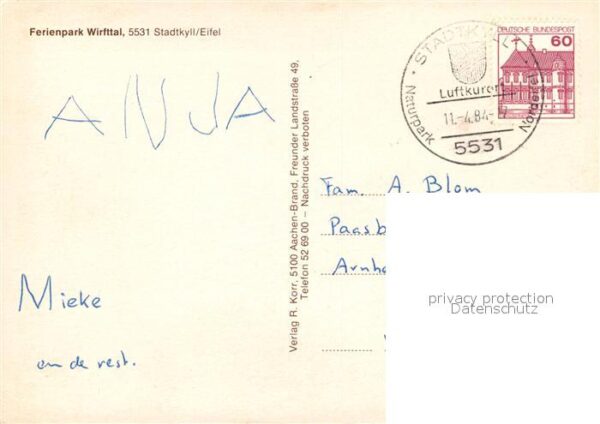 Ferienpark Wirfttal, 5531 Stadtkyll/Eifel
ANJA
Mieke
en de rest.
Verlag R. Korr, 5100 Aachen-Brand, Freunder Landstraße 49,
Telefon 52 69 00 – Nachdruck verboten
STADTKYLL
Luftkurort
11.-4.84.-
Naturpark Nordeifel
5531
DEUTSCHE BUNDESPOST
60
Fam. A. Blom
Paasb
Arnh
privacy protection
Datenschutz